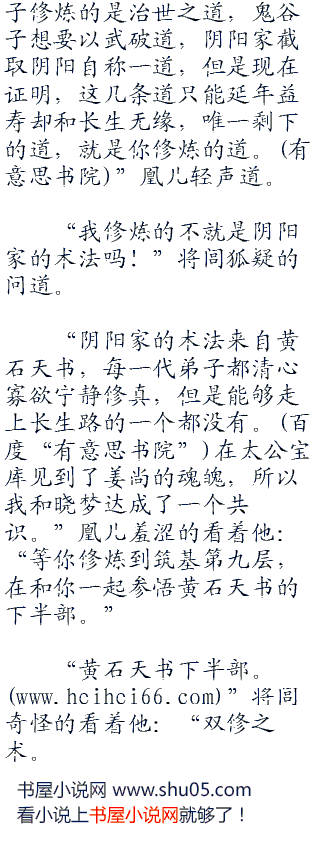 子修炼的是治世之道，鬼谷
子想要以武破道，阴阳家截
取阴阳自称一道，但是现在
证明，这几条道只能延年益
寿却和长生无缘，唯一剩下
的道，就是你修炼的道。(有
意思书院)”凰儿轻声道。
“我修炼的不就是阴阳
家的术法吗！”将闾狐疑的
问道。
“阴阳家的术法来自黄
石天书，每一代弟子都清心
寡欲宁静修真，但是能够走
上长生路的一个都没有。(百
度“有意思书院”)在太公宝
库见到了姜尚的魂魄，所以
我和晓梦达成了一个共
识。”凰儿羞涩的看着他：
“等你修炼到筑基第九层，
在和你一起参悟黄石天书的
下半部。”
“黄石天书下半部。
(www.hcihci66.com)”将闾
奇怪的看着他：“双修之
术。
书屋小说网 www.shu05.com
看小说上书屋小说网就够了！